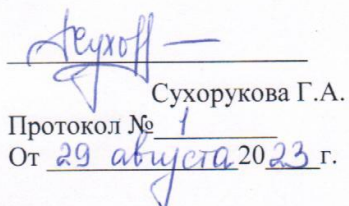 Сухорукова Г.А.
Протокол № 1
От 29 августа 2023 г.